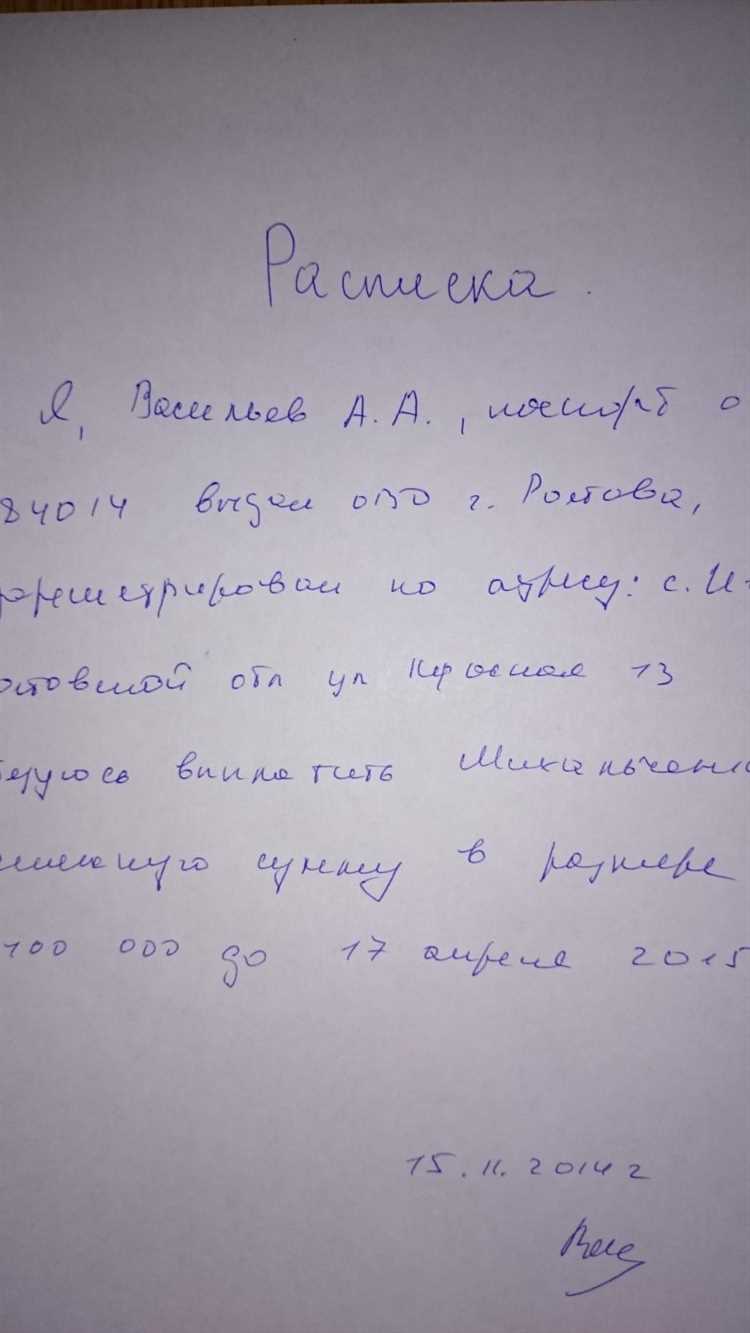 Расписка.
Я, Васильев А.А., паспорт о
84014 выдан ОВО г. Ростова,
регистрирован по адресу: с.
остовской обл ул Красная 13
выплатить Михальченко
сумму в размере
100 000 до 17 апреля 2015
15.11.2014 г